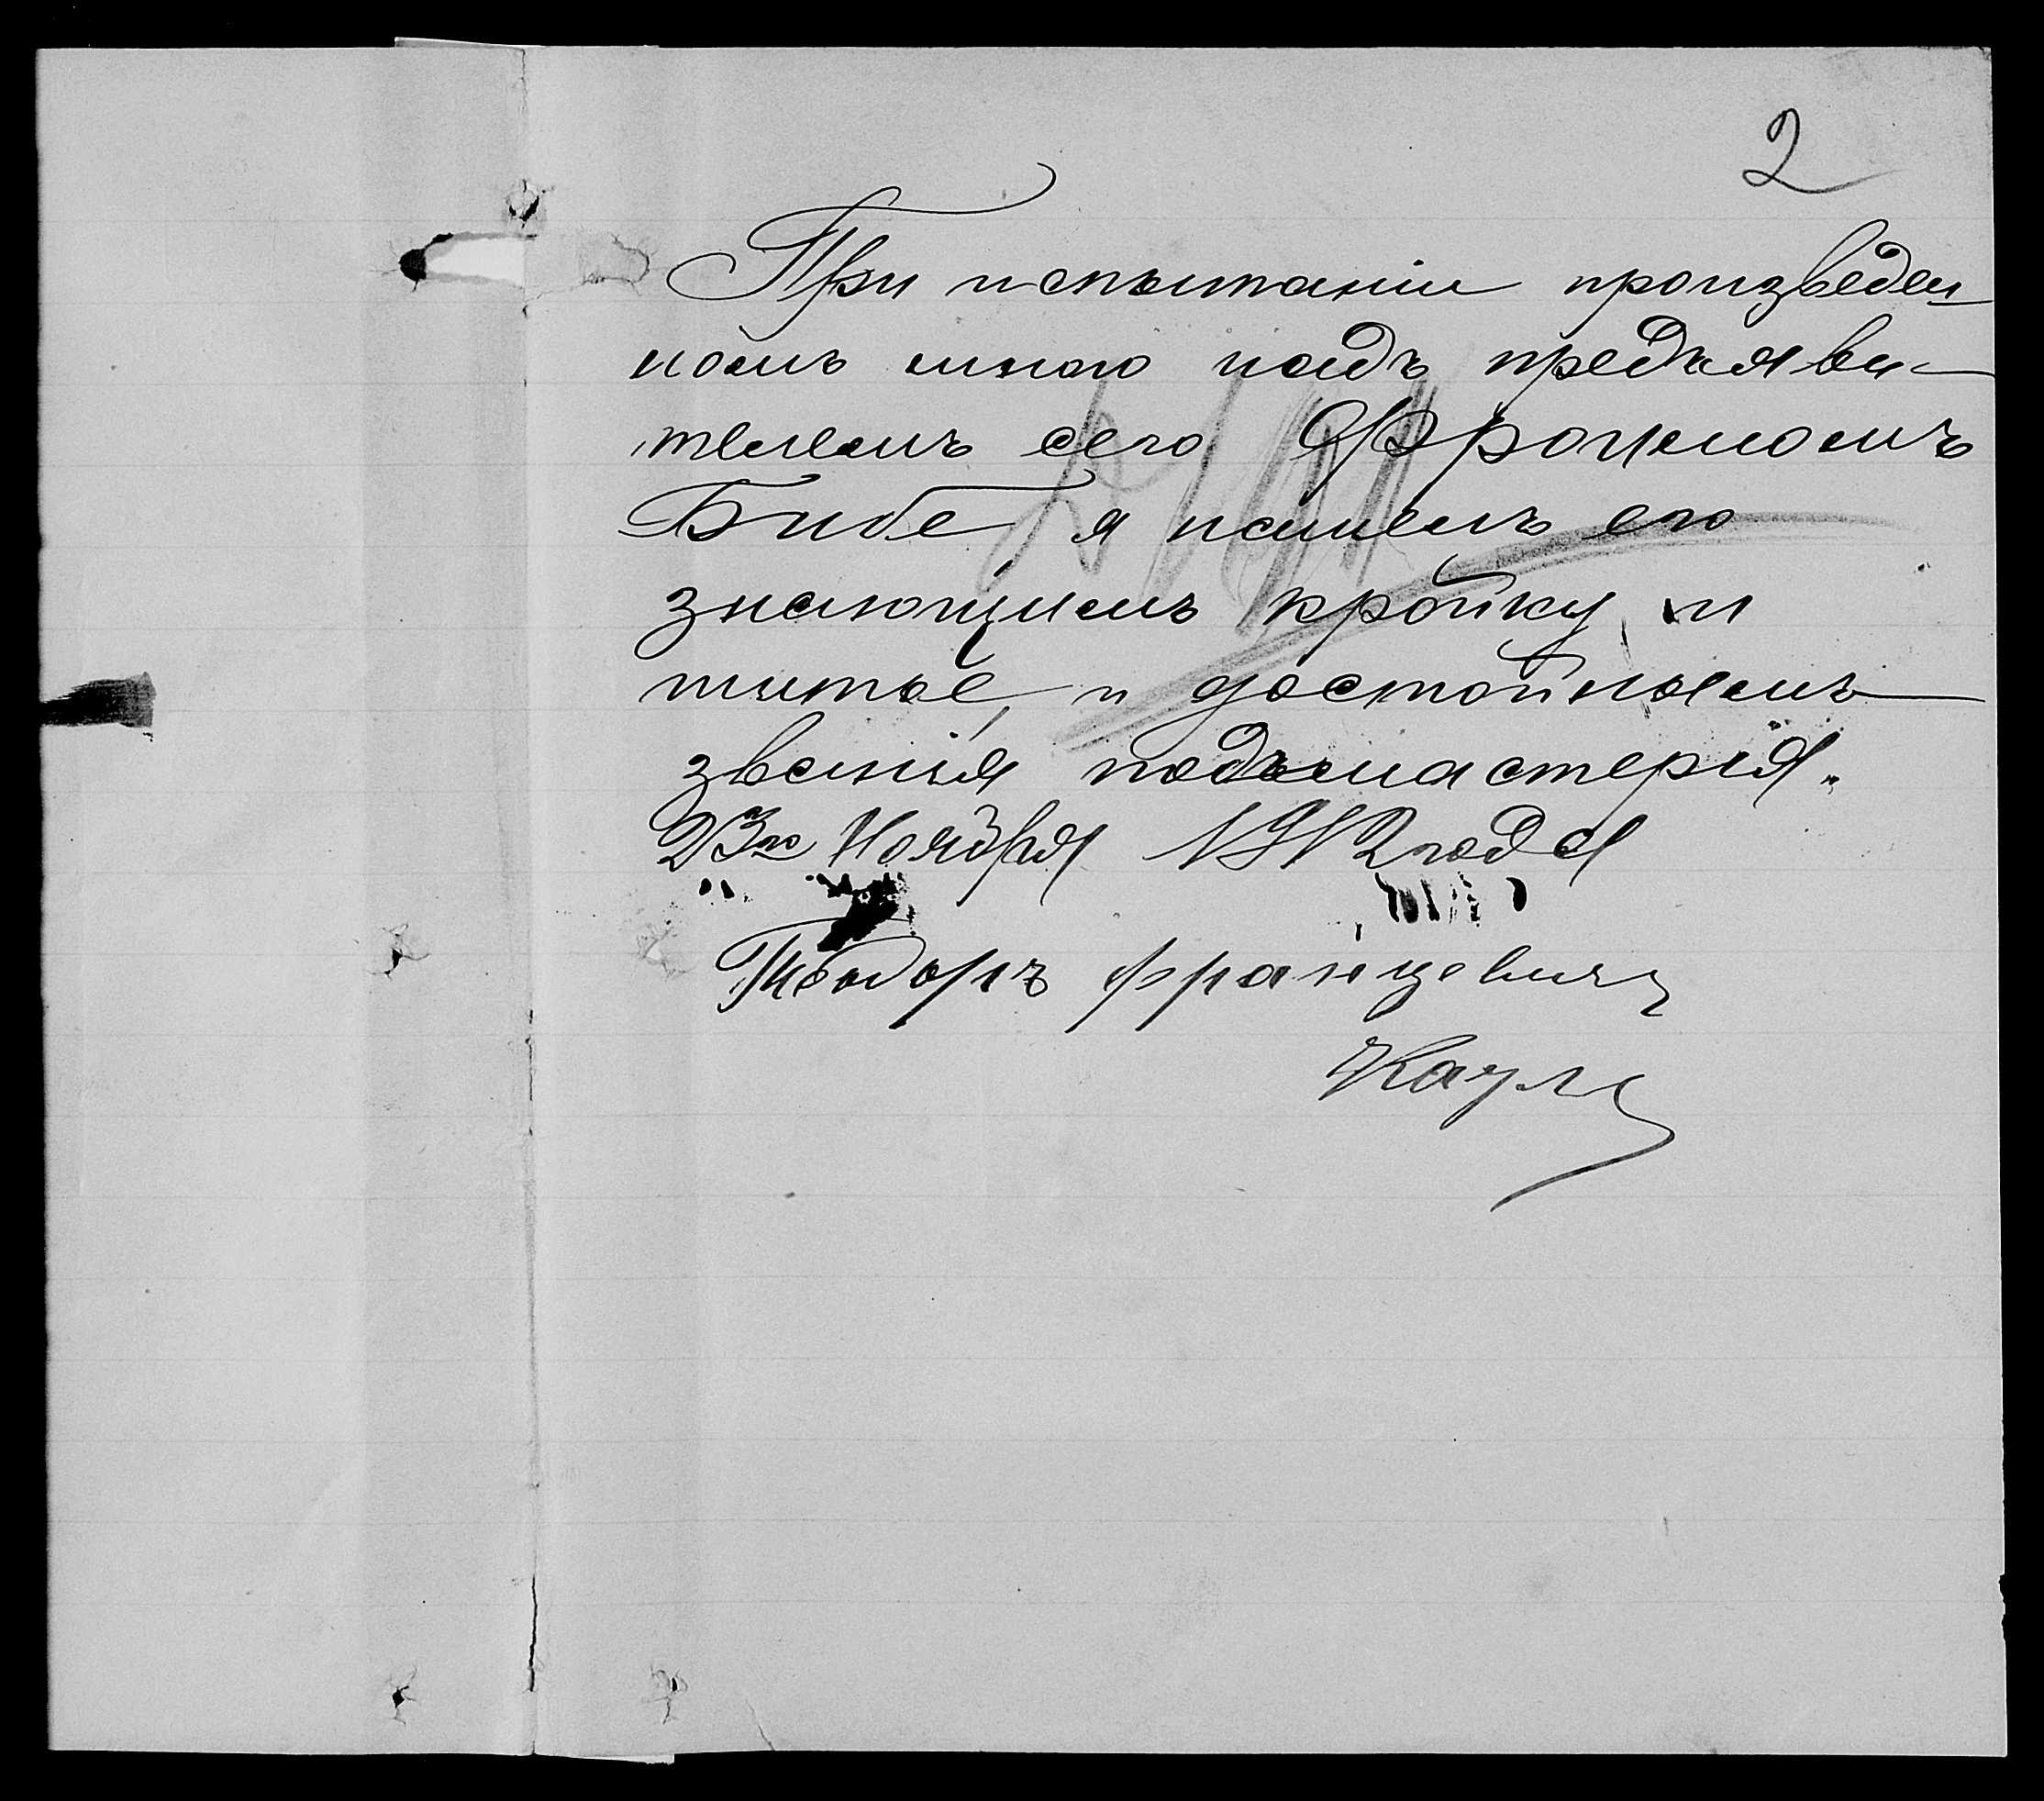 2
При испытаніи произведен
номъ мною надъ предъяви-
телемъ сего Фроимомъ
Бибе я нашелъ его
знающимъ кройку и
шитье, и достойнымъ
званія подъмастерія.
23го Ноября 1912 года
Теодоръ Францевичъ
Каул